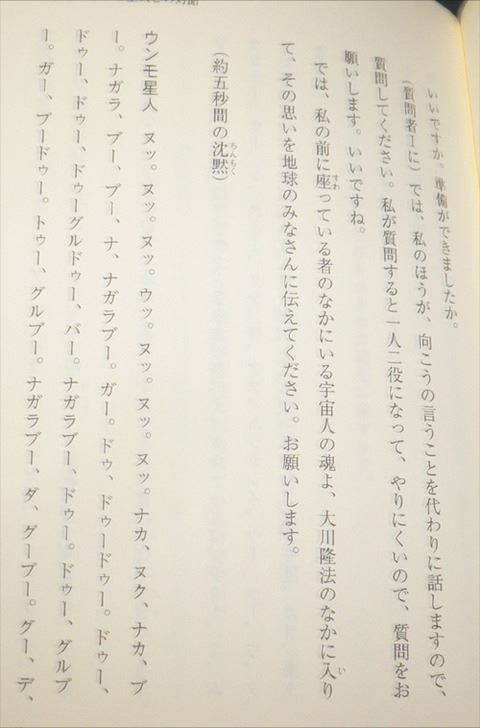 いいですか。準備ができましたか。
(質問者Iに)では、私のほうが、向こうの言うことを代わりに話しますので、
質問してください。私が質問すると一人二役になって、やりにくいので、質問をお
願いします。いいですね。
では、私の前に座っている者のなかにいる宇宙人の魂よ、大川隆法のなかに入り
て、その思いを地球のみなさんに伝えてください。お願いします。
(約五秒間の沈黙)
ウンモ星人 ヌッ。ヌッ。ヌッ。ウッ。ヌッ。ヌッ。ヌッ。ナカ、ヌク、ナカ、ブ
ー。ナガラ、ブー、ブー、ナ、ナガラブー。ガー。ドゥ、ドゥードゥー。ドゥー、
ドゥー、ドゥー、ドゥーグルドゥー、バー。ナガラブー、ドゥー。ドゥー、グルブ
ー。ガー、ブードゥー。トゥー、グルブー。ナガラブー、ダ、グーブー。グー、デ、